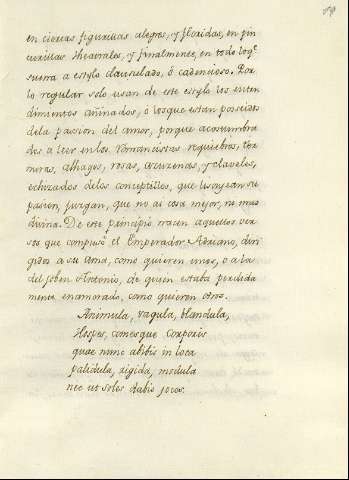 en ciertas figurillas alegres, y floridas, en pin
turillas theatrales, y finalmente, en todo loq.e
suena a estylo clausulado, ó cadencioso. Por
lo regular solo usan de este estylo los enten
dimientos aniñados, ó los que estan poseidos
dela passion del amor, porque acostumbra
dos a leer enlos Romancistas requiebros, ter
nuras, alhagos, rosas, azuzenas, y claveles,
echizados delos conceptillos, que lisongean su
pasion, juzgan, que no ai cosa mejor, ni mas
divina. De este principio nacen aquellos ver
sos que compuso el Emperador Adriano, diri
gidos a su alma, como quieren unos, ó a la
del joben Antonio, de quien estaba perdida
mente enamorado, como quieren otros.
Animula, vagula, blandula,
Hospes, comesque corporis
quae nunc abibis in loca
palidula, rigida, nudula
nec ut soles dabis jocos.